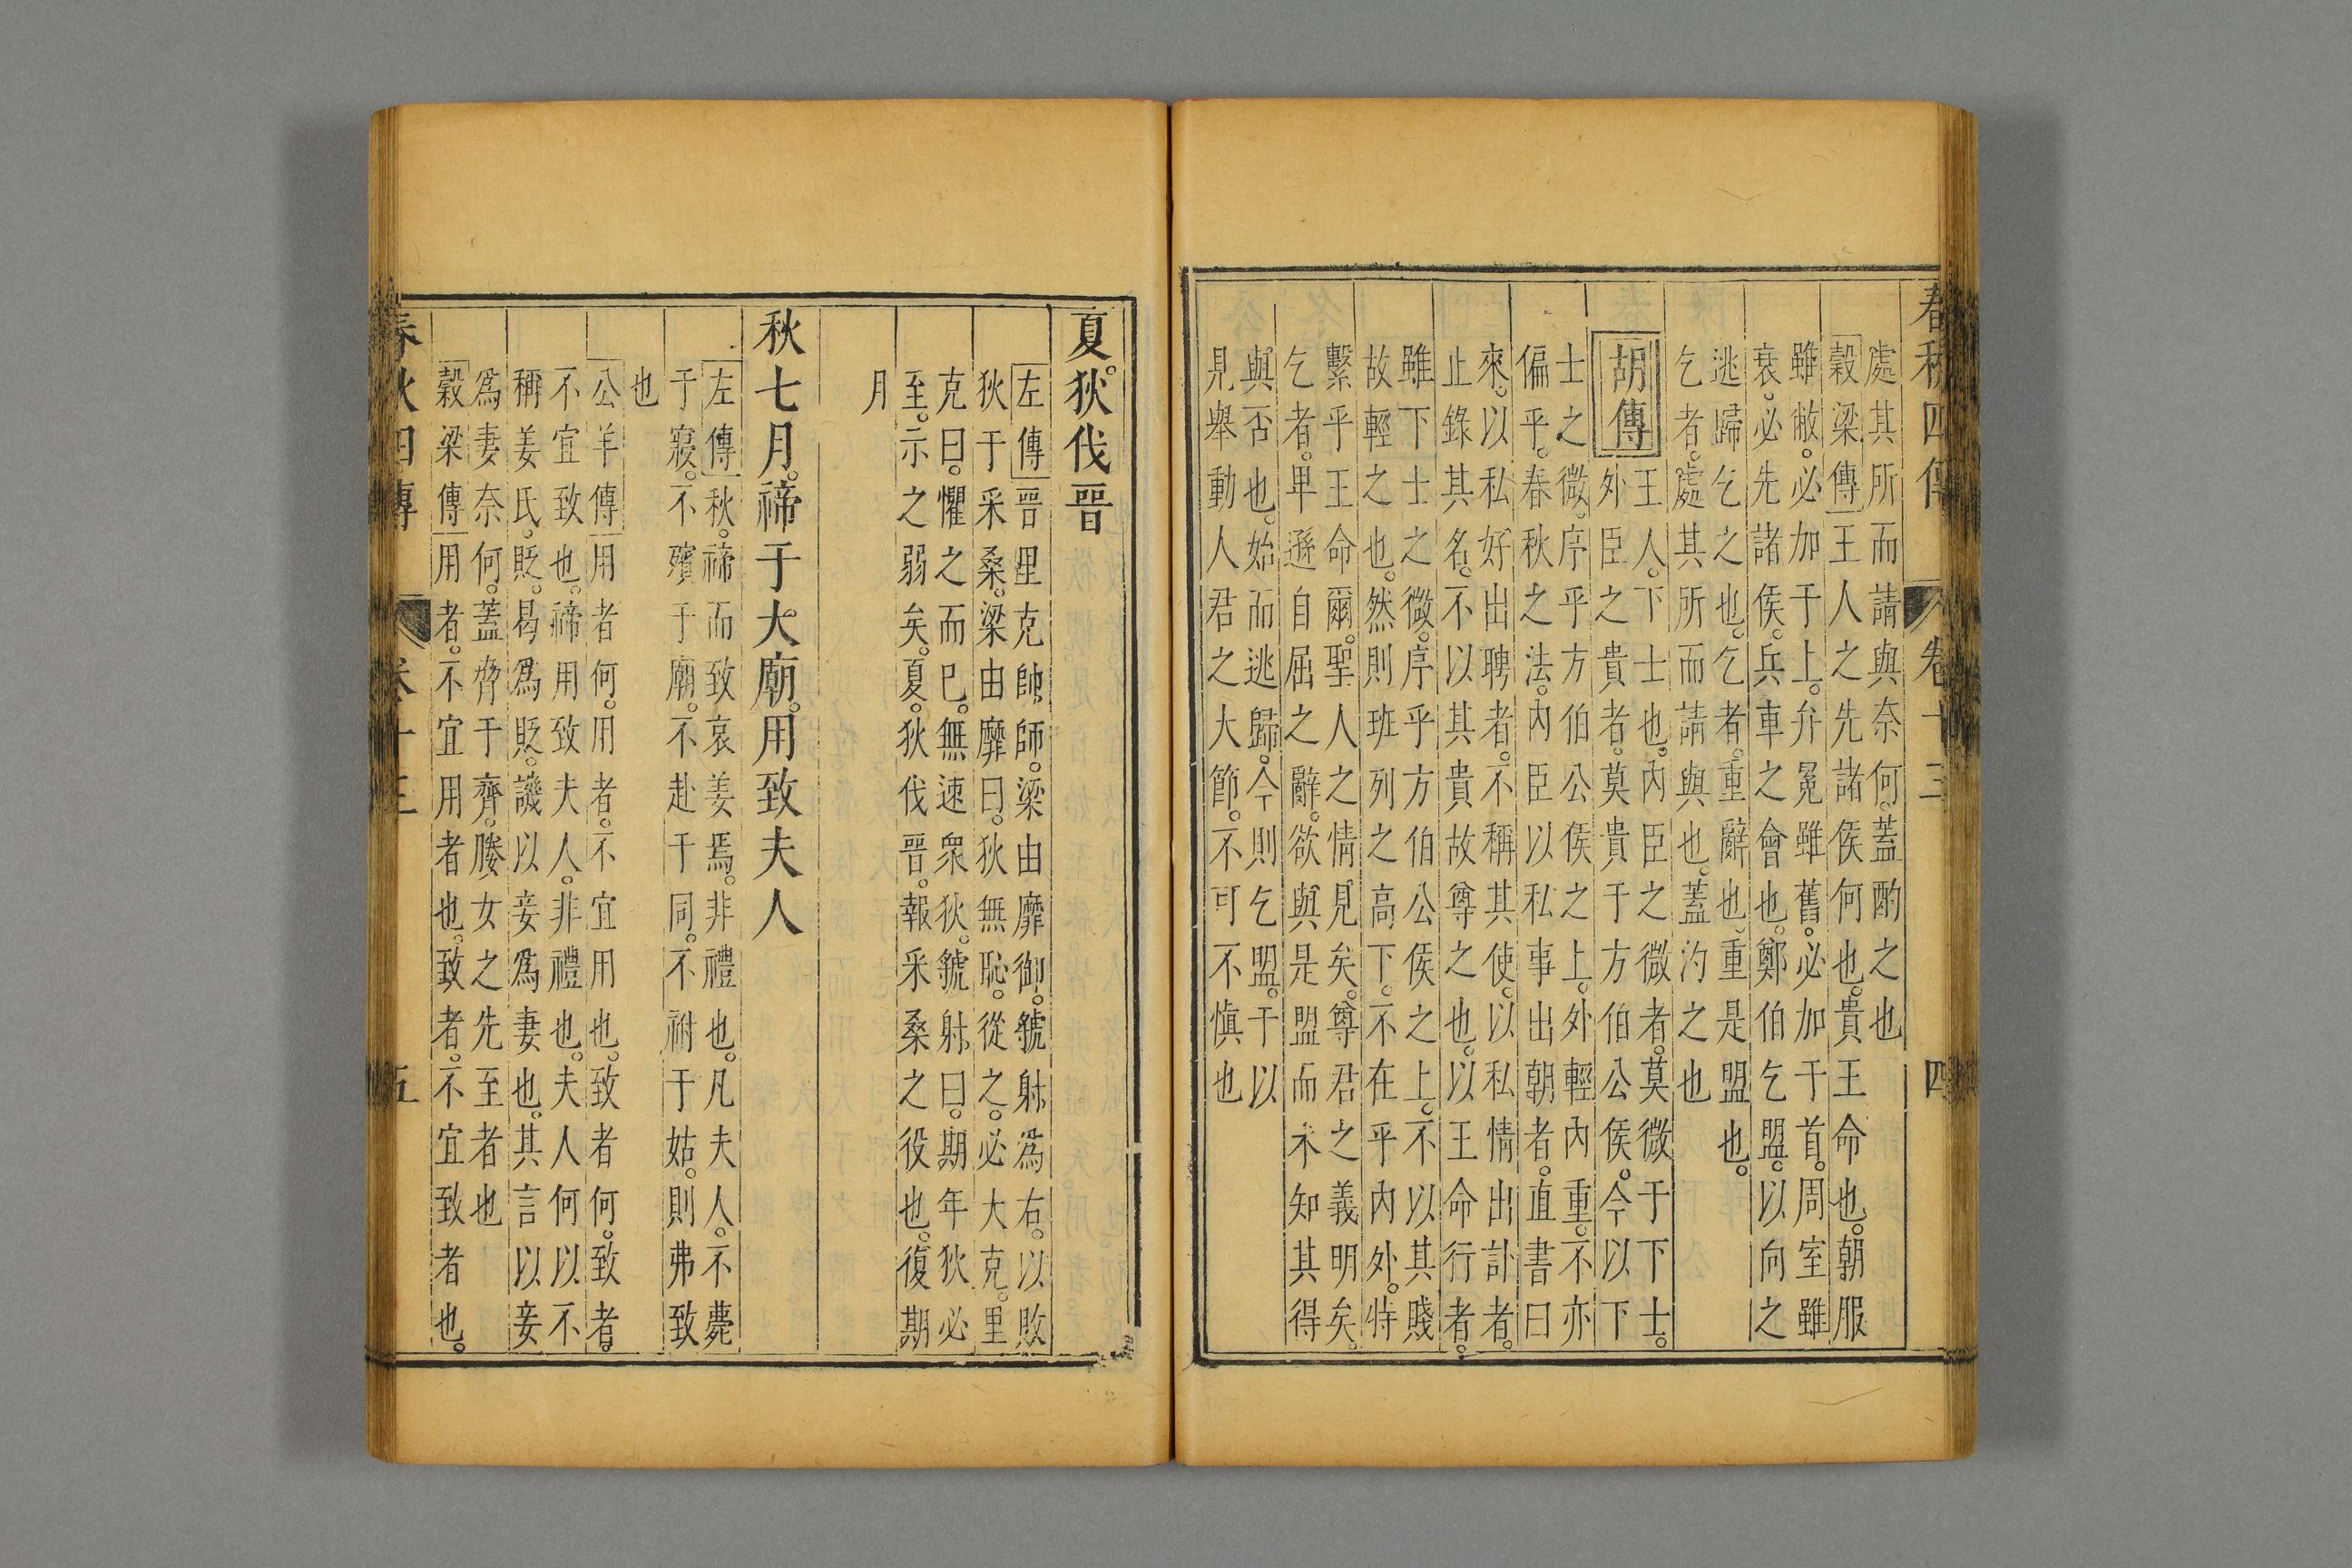 春秋四傳 卷十三 四
處其所而請與奈何。蓋酌之也
穀梁傳王人之先諸侯何也。貴王命也。朝服
雖敝。必加于上。弁冕雖舊。必加于首。周室雖
衰。必先諸侯。兵車之會也。鄭伯乞盟。以向之
逃歸乞之也。乞者。重辭也。重是盟也。
乞者。處其所而請與也。蓋汋之也
胡傳 王人。下士也。內臣之微者。莫微于下士。
外臣之貴者。莫貴于方伯公侯。今以下
士之微。序乎方伯公侯之上。外輕內重。不亦
偏乎。春秋之法。內臣以私事出朝者。直書曰
來。以私好出聘者。不稱其使。以私情出訃者。
止錄其名。不以其貴故尊之也。以王命行者。
雖下士之微。序乎方伯公侯之上。不以其賤
故輕之也。然則班列之高下。不在乎內外。特
繫乎王命爾。聖人之情見矣。尊君之義明矣。
乞者。卑遜自屈之辭。欲與是盟而未知其得
與否也。始而逃歸。今則乞盟。于以
見舉動人君之大節。不可不慎也
夏。狄伐晉
左傳晉里克帥師。梁由靡御。虢射為右。以敗
狄于采桑。梁由靡曰。狄無恥。從之。必大克。里
克曰。懼之而已。無速眾狄。虢射曰。期年狄必
至。示之弱矣。夏。狄伐晉。報采桑之役也。復期
月
秋七月。禘于大廟。用致夫人
左傳秋。禘而致哀姜焉。非禮也。凡夫人。不薨
于寢。不殯于廟。不赴于同。不祔于姑。則弗致
也
公羊傳用者何。用者。不宜用也。致者何。致者。
不宜致也。禘用致夫人。非禮也。夫人何以不
稱姜氏。貶。曷為貶。譏以妾為妻也。其言以妾
為妻奈何。蓋脅于齊。媵女之先至者也
穀梁傳用者。不宜用者也。致者。不宜致者也。
春秋四傳 卷十三 五